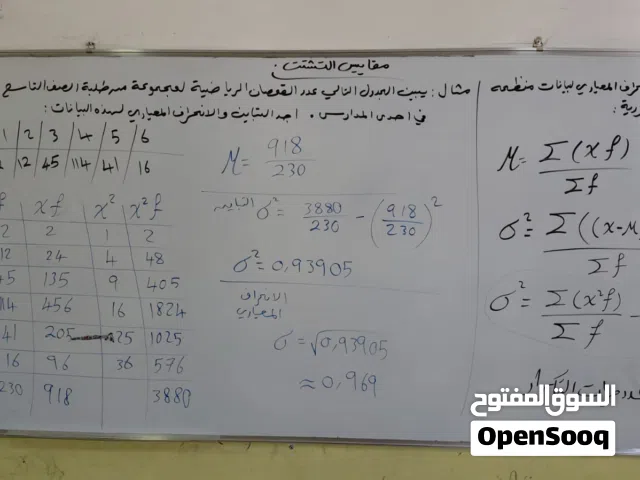 مقاييس التشتت:
مثال: يبين الجدول التالي عدد القمصان الرياضية لمجموعة من طلبة الصف التاسع
في احدى المدارس. اجد التباين والانحراف المعياري لهذه البيانات:
1 2 3 4 5 6
12 45 114 41 16
f xf x² x²f
2 2 1 2
12 24 4 48
45 135 9 405
114 456 16 1824
41 205 25 1025
16 96 36 576
230 918 3880
M = 918/230
التباين σ² = 3880/230 - (918/230)²
σ² = 0,93905
الانحراف
المعياري
σ = √0,93905
≈ 0,969
المعياري لبيانات منظمة
M = Σ(xf)/Σf
σ² = Σ((x-M)/Σf
σ² = Σ(x²f)/Σf -
السوق المفتوح
OpenSooq